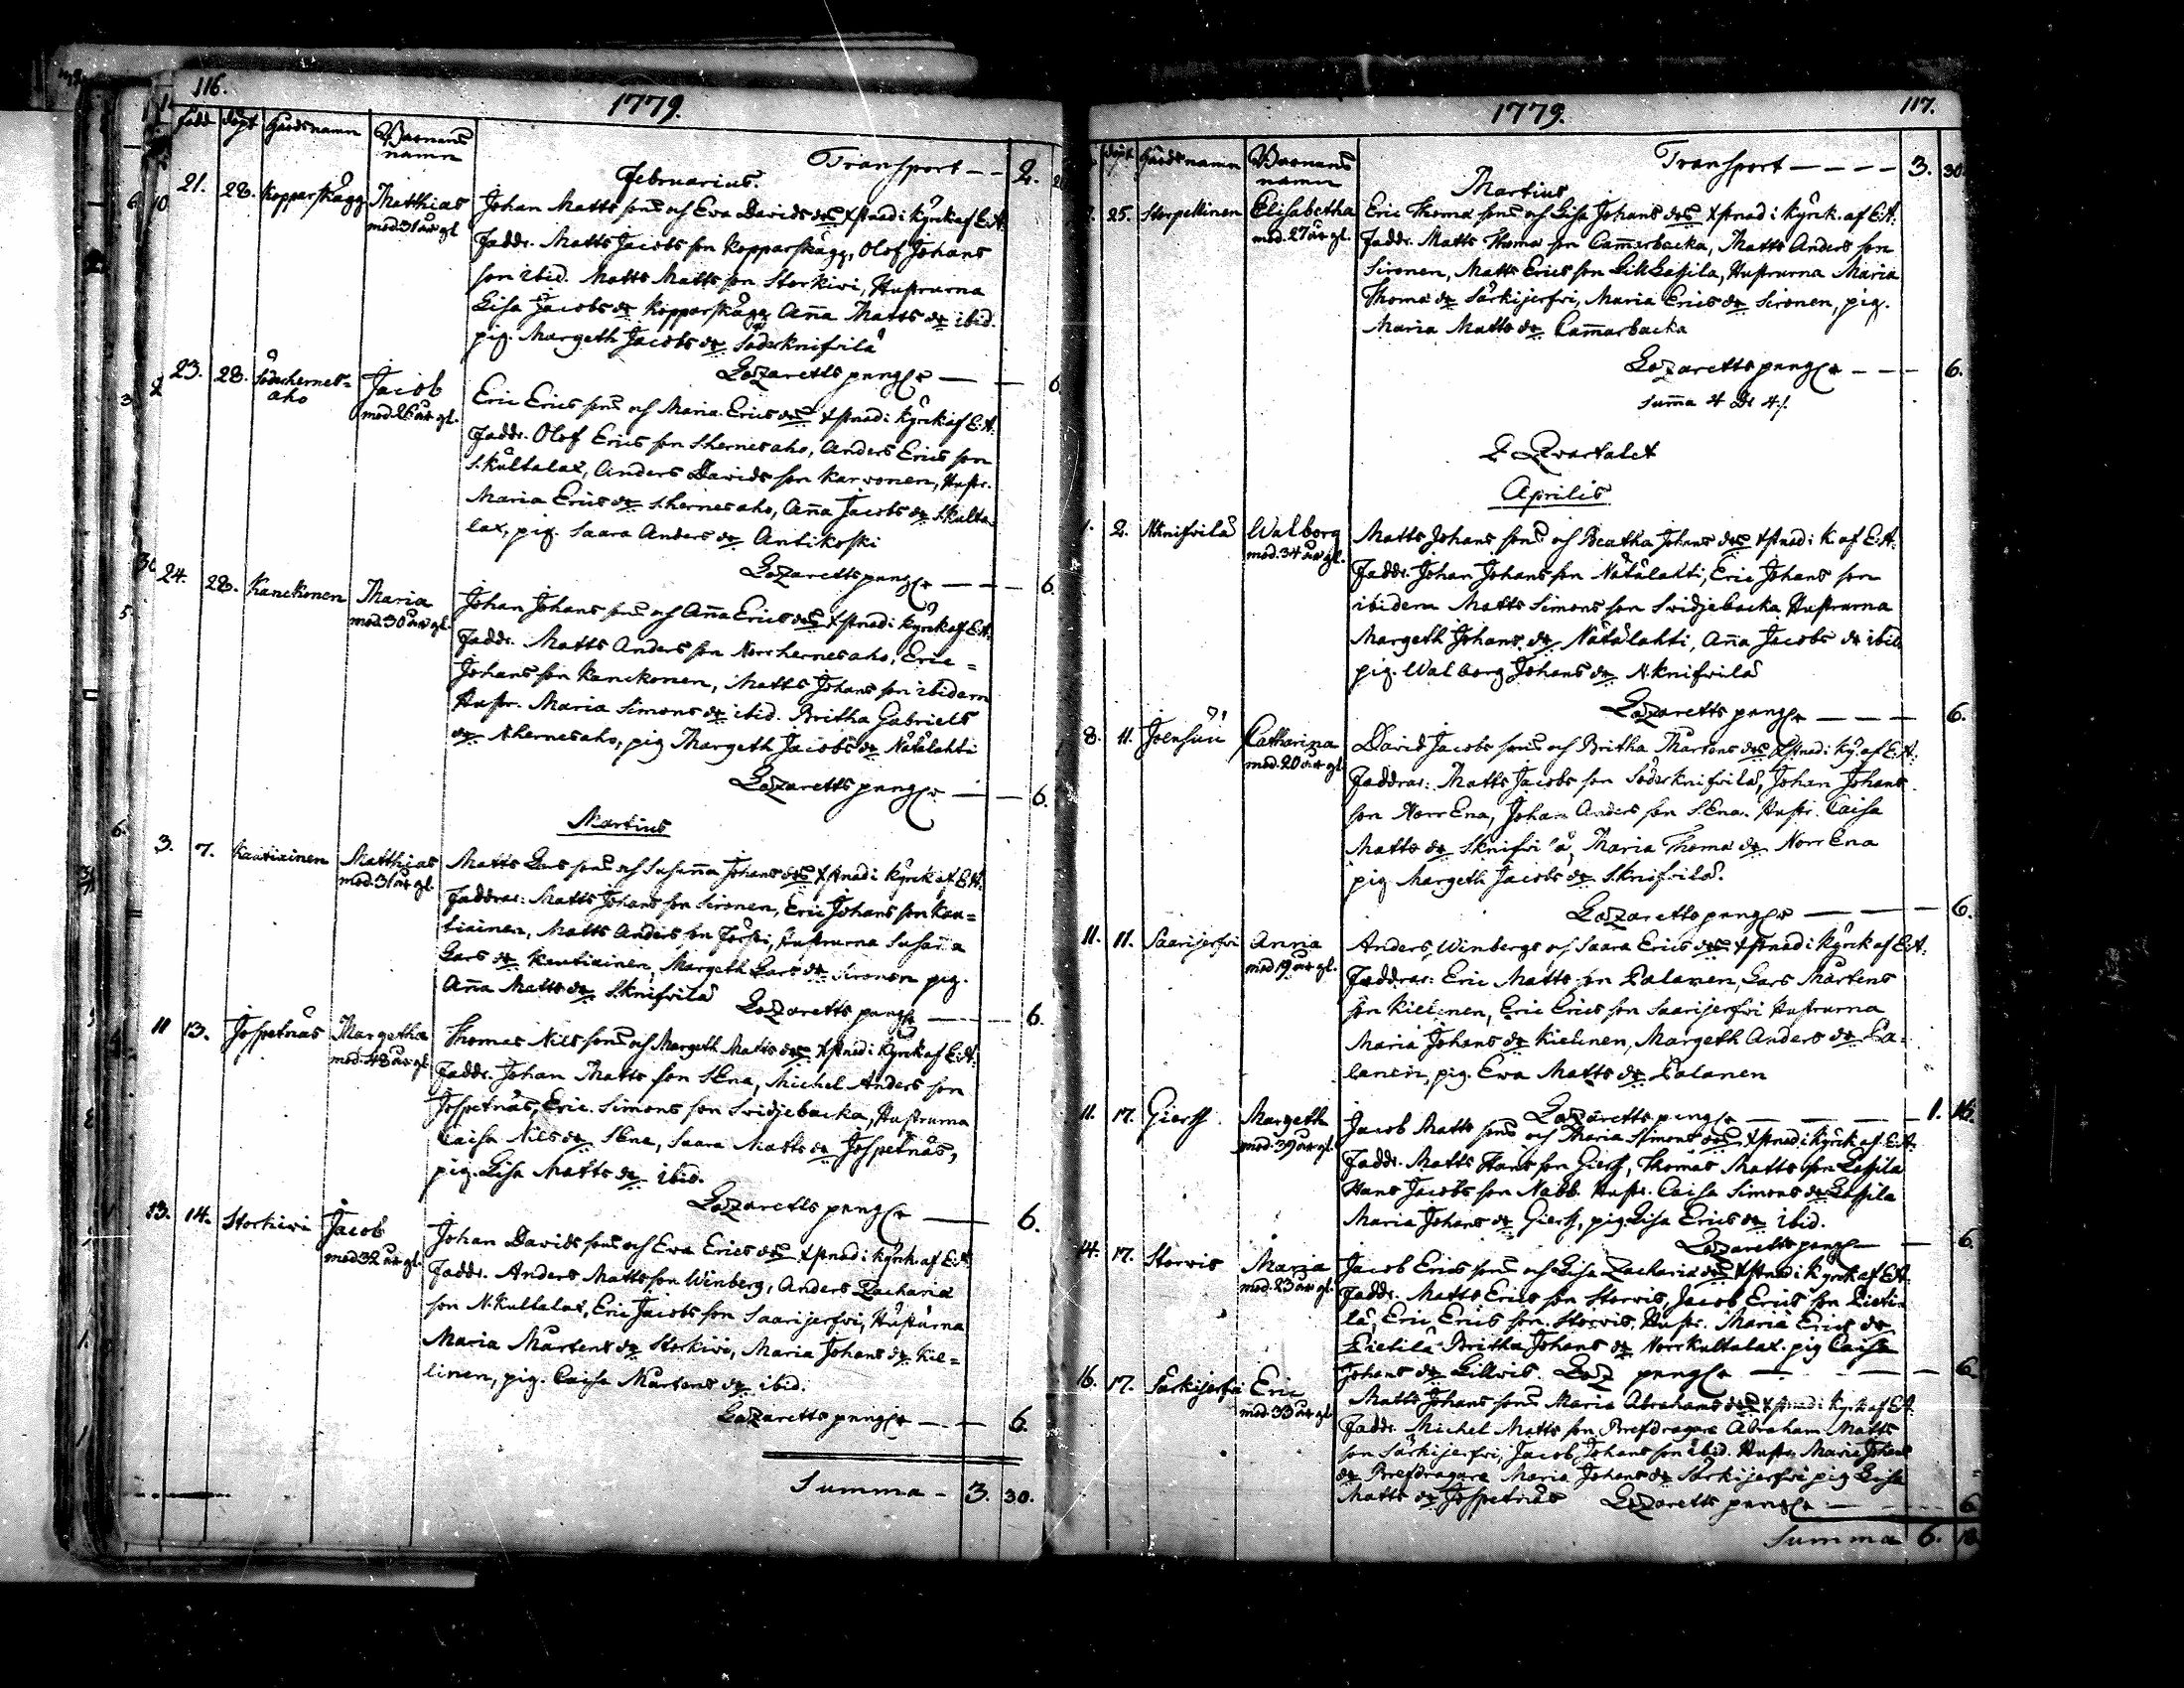 116.
1779.
född döpt Gårdsnamn Barnens namn
Transport - - 2.
Februarius.
21. 28. Kopparskägg Matthias mod. 31 år gl.
Johan Matts son och Eva Davids dotr xstnad i Kyrk af E:A:
Faddr. Matts Jacobs son Kopparskägg, Olof Johans
son ibid. Matts Matts son Storkivi, Hustrurna
Lisa Jacobs dr Kopparskägg Anna Matts dr ibid.
pig. Margeth Jacobs dr Söderknifvilä
Lazaretts pengr — — 6
23. 28. Söderhernes=aho Jacob mod. 26 år gl.
Eric Erics son och Maria Erics dotr xstnad i Kyrk af E:A:
Faddr. Olof Erics son S.hernesaho, Anders Erics son
S.Kultalax, Anders Davids son Karvonen, Hustr.
Maria Erics dr S.hernesaho, Anna Jacobs dr S.Kulta=
lax, pig. Saara Anders dr Antikoski
Lazaretts pengr — — 6.
24. 28. Kanckonen Maria mod. 30 år gl.
Johan Johans son och Anna Erics dotr xstnad i Kyrk af E:A:
Faddr. Matts Anders son Norrhernesaho, Eric =
Johans son Kanckonen, Matts Johans son ibidem
Hustr. Maria Simons dr ibid. Britha Gabriels
dr N.hernesaho, pig Margeth Jacobs dr Nätälahti
Lazaretts pengr — — 6.
Martius
3. 7. Kautiainen Matthias mod. 31 år gl.
Matts Lars son och Susanna Johans dotr xstnad i Kyrk af E:A:
Faddrar: Matts Johans son Sironen, Eric Johans son Kau=
tiainen, Matts Anders son Torski, Hustrurna Susanna
Lars dr Kautiainen, Margeth Lars dr Sironen pig.
Anna Matts dr S.knifvilä
Lazaretts pengr — — 6.
11 13. Jospetnäs Margetha mod. 48 år gl.
Thomas Nils son och Margeth Matts dotr xstnad i Kyrk af E:A:
Faddr. Johan Matts son SEna, Michel Anders son
Jospetnäs, Eric Simons son Svidjebacka, Hustrurna
Caisa Nils dr SEna, Saara Matts dr Jospetnäs,
pig. Lisa Matts dr ibid.
Lazaretts pengr — 6.
13. 14. Storkivi Jacob mod 32 år gl.
Johan Davids son och Eva Erics dotr xstnad i Kyrk. af E:A:
Faddr. Anders Matts son Winberg, Anders Zachariæ
son N.Kultalax, Eric Jacobs son Saarijerfvi, Hustrurna
Maria Mårtens dr Storkivi, Maria Johans dr Kie=
linen, pig. Caisa Mårtens dr ibid.
Lazaretts pengr — — 6.
Summa - 3. 30.
117.
1779.
döpt Gårdsnamn Barnens namn
Transport - - - - 3. 30.
Martius
25. Storpellinen Elisabetha mod. 27 år gl.
Eric Thomæ son och Lisa Johans dotr xstnad i Kyrk. af E:A:
Faddr. Matts Thomæ son Cammarbacka, Matts Anders son
Sironen, Matts Erics son LillLassila, Hustrurna Maria
Thomæ dr Särkijerfvi, Maria Erics dr Sironen, pig.
Maria Matts dr Cammarbacka
Lazaretts pengr - - - 6.
Summa 4 Dr 4.
2 Qvartalet
Aprilis
1. 2. N.knifvilä Walborg mod. 34 år gl.
Matts Johans son och Beatha Johans dotr xstnad i K. af E:A:
Faddr. Johan Johans son Nätälahti, Eric Johans son
ibidem Matts Simons son Svidjebacka Hustrurna
Margeth Johans dr Nätälahti, Anna Jacobs dr ibid.
pig. Walborg Johans dr N.knifvilä
Lazaretts pengr — — — 6.
8. 11. Joensuu Catharina mod. 20 år gl.
David Jacobs son och Britha Mårtens dotr xstnad i Ky. af E:A:
Faddrar: Matts Jacobs son Söderknifvilä, Johan Johans
son NorrEna, Johan Anders son S.Ena. Hustr. Caisa
Matts dr S.knifvilä, Maria Thomæ dr NorrEna
pig Margeth Jacobs dr S.knifvilä.
Lazaretts pengr — — — 6.
11. 11. Saarijerfvi Anna mod 19 år gl.
Anders Winbergs och Saara Erics dotr xstnad i Kyrk af E:A:
Faddrar: Eric Matts son Palanen, Lars Mårtens
son Kielinen, Eric Erics son Saarijerfvi Hustrurna
Maria Johans dr Kielinen, Margeth Anders dr Pa=
lanen, pig. Ewa Matts dr Palanen
Lazaretts pengr — — — 1. 16.
11. 17. Giers Margeth mod. 39 år gl.
Jacob Matts son och Maria Simons dotr xstnad i Kyrk af E:A:
Faddr. Matts Hans son Giers, Thomas Matts son Lassila
Hans Jacobs son Nabb. Hustr. Caisa Simons dr Lassila
Maria Johans dr Giers, pig. Lisa Erics dr ibid.
Lazaretts pengr — 6.
14. 17. Storvis Maria mod. 23 år gl.
Jacob Erics son och Lisa Zachariæ dotr xstnad i Kyrk af E:A:
Faddr. Matts Erics son Storvis, Jacob Erics son Pieti=
lä, Eric Erics son Storvis, Hustr. Maria Erics dr
Pietilä Britha Johans dr Norrkultalax. pig Caisa
Johans dr Lillvis. Laz pengr — — — 6.
16. 17. Särkijerfvi Eric mod. 33 år gl
Matts Johans son Maria Abrahams dotr xstnad i Kyrk af E:A:
Faddr. Michel Matts son Brefdragare Abraham Matts
son Särkijerfvi, Jacob Johans son ibid. Hustr. Maria Johans
dr Brefdragare Maria Johans dr Särkijerfvi pig Lisa
Matts dr Jospetnäs Lazaretts pengr — — 6
Summa 6. 18